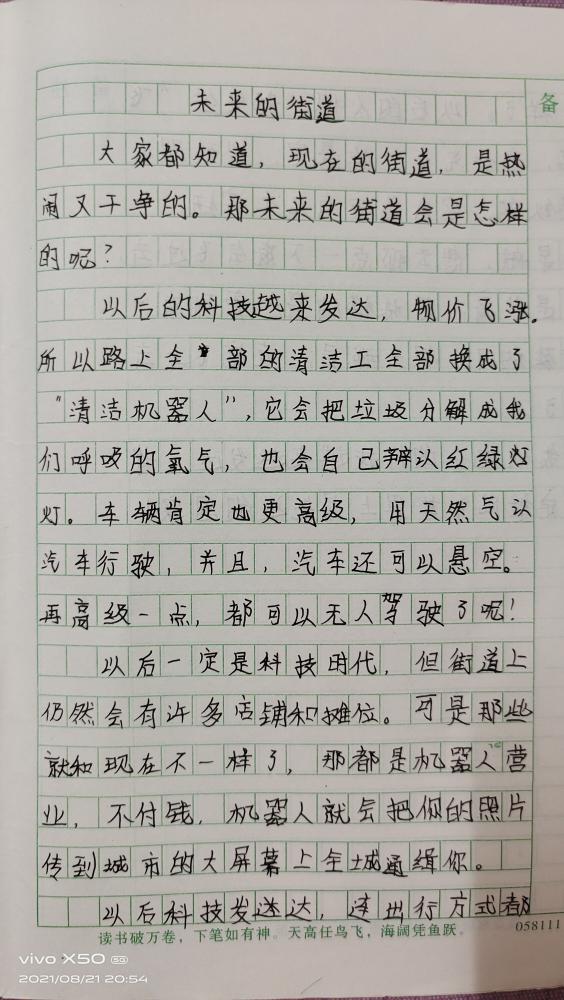 备
未来的街道
大家都知道，现在的街道，是热
闹又干争的。那未来的街道会是怎样
的呢？
以后的科技越来发达，物价飞涨。
所以路上全部的清洁工全部换成了
“清洁机器人”，它会把垃圾分解成我
们呼吸的氧气，也会自己辨认红绿灯
灯。车辆肯定也更高级，用天然气认
汽车行驶，并且，汽车还可以悬空。
再高级一点，都可以无人驾驶了呢！
以后一定是科技时代，但街道上
仍然会有许多店铺和摊位。可是那些
就和现在不一样了，那都是机器人营
业，不付钱，机器人就会把你的照片
传到城市的大屏幕上全城通缉你。
以后科技发达，连出行方式都
读书破万卷，下笔如有神。天高任鸟飞，海阔凭鱼跃。 058111
vivo X50 5G
2021/08/21 20:54